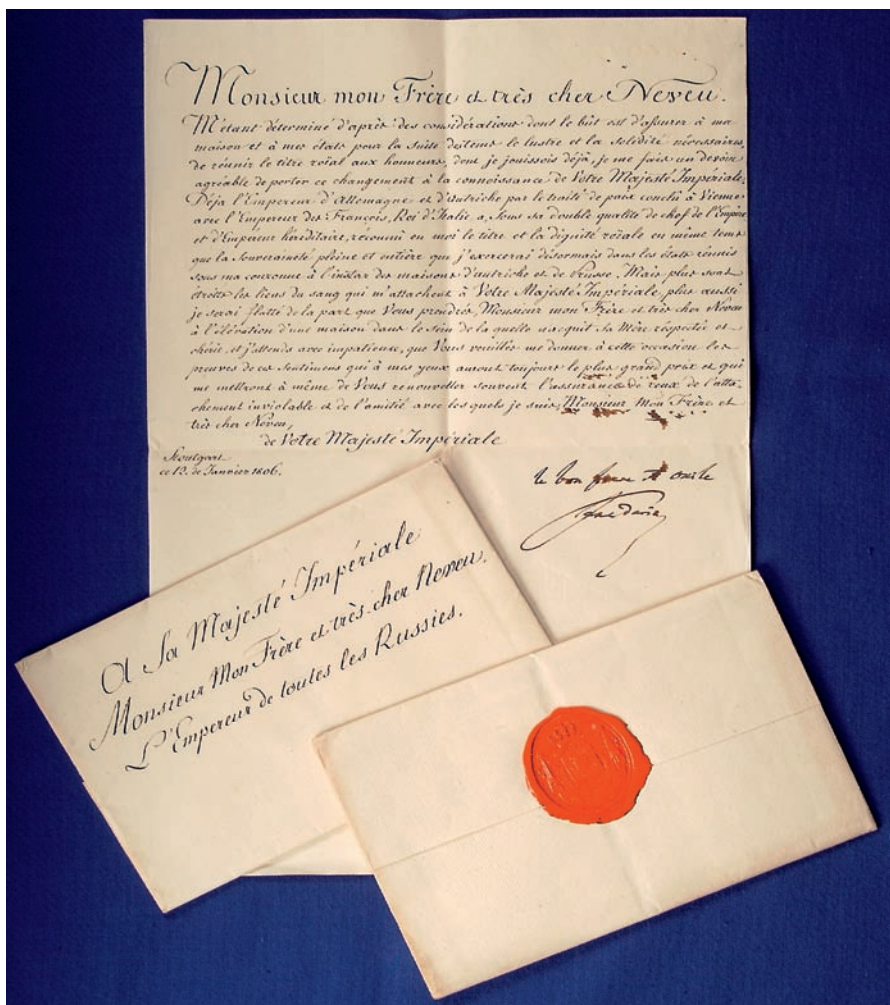 Monsieur mon Frère et très cher Neveu.
M'étant déterminé d'après des considérations dont le bût est d'assurer à ma
maison et à mes états pour la Suite des tems le lustre et la Solidité nécessaires,
de réunir le titre roïal aux honneurs, dont je jouissois déjà, je me fais un devoir
agréable de porter ce changement à la connoissance de Votre Majesté Impériale.
Déja l'Empereur d'Allemagne et d'Autriche par le traité de paix conclû à Vienne
avec l'Empereur des François, Roi d'Italie a, Sous sa double qualité de chef de l'Empire
et d'Empereur héréditaire, reconnu en moi le titre et la dignité roïale en même tems
que la Souveraineté pleine et entière que j'exercerai désormais dans les états réunis
sous ma couronne à l'instar des maisons d'Autriche et de Prusse. Mais plus sont
étroits les liens du sang qui m'attachent à Votre Majesté Impériale, plus aussi
je serai flatté de la part que Vous prendrés, Monsieur mon Frère et très cher Neveu
à l'élévation d'une maison dans le Sein de la quelle naquit Sa Mère respectée et
chérie, et j'attends avec impatience, que Vous veuillés me donner à cette occasion les
preuves de ces Sentimens qui à mes yeux auront toujours le plus grand prix et qui
me mettront à même de Vous renouveller souvent l'assurance de ceux de l'atta-
chement inviolable et de l'amitié avec les quels je suis, Monsieur Mon Frère et
très cher Neveu,
de Votre Majesté Impériale
Stoutgart
ce 13. de Janvier 1806.
le bon frere et oncle
A Sa Majesté Impériale
Monsieur Mon Frère et très cher Neveu.
L'Empereur de toutes les Russies.